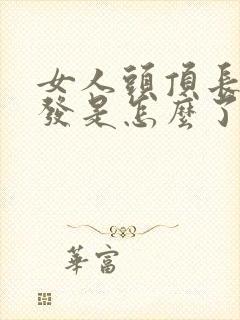 女人頭頂長
發是怎麼了
華富